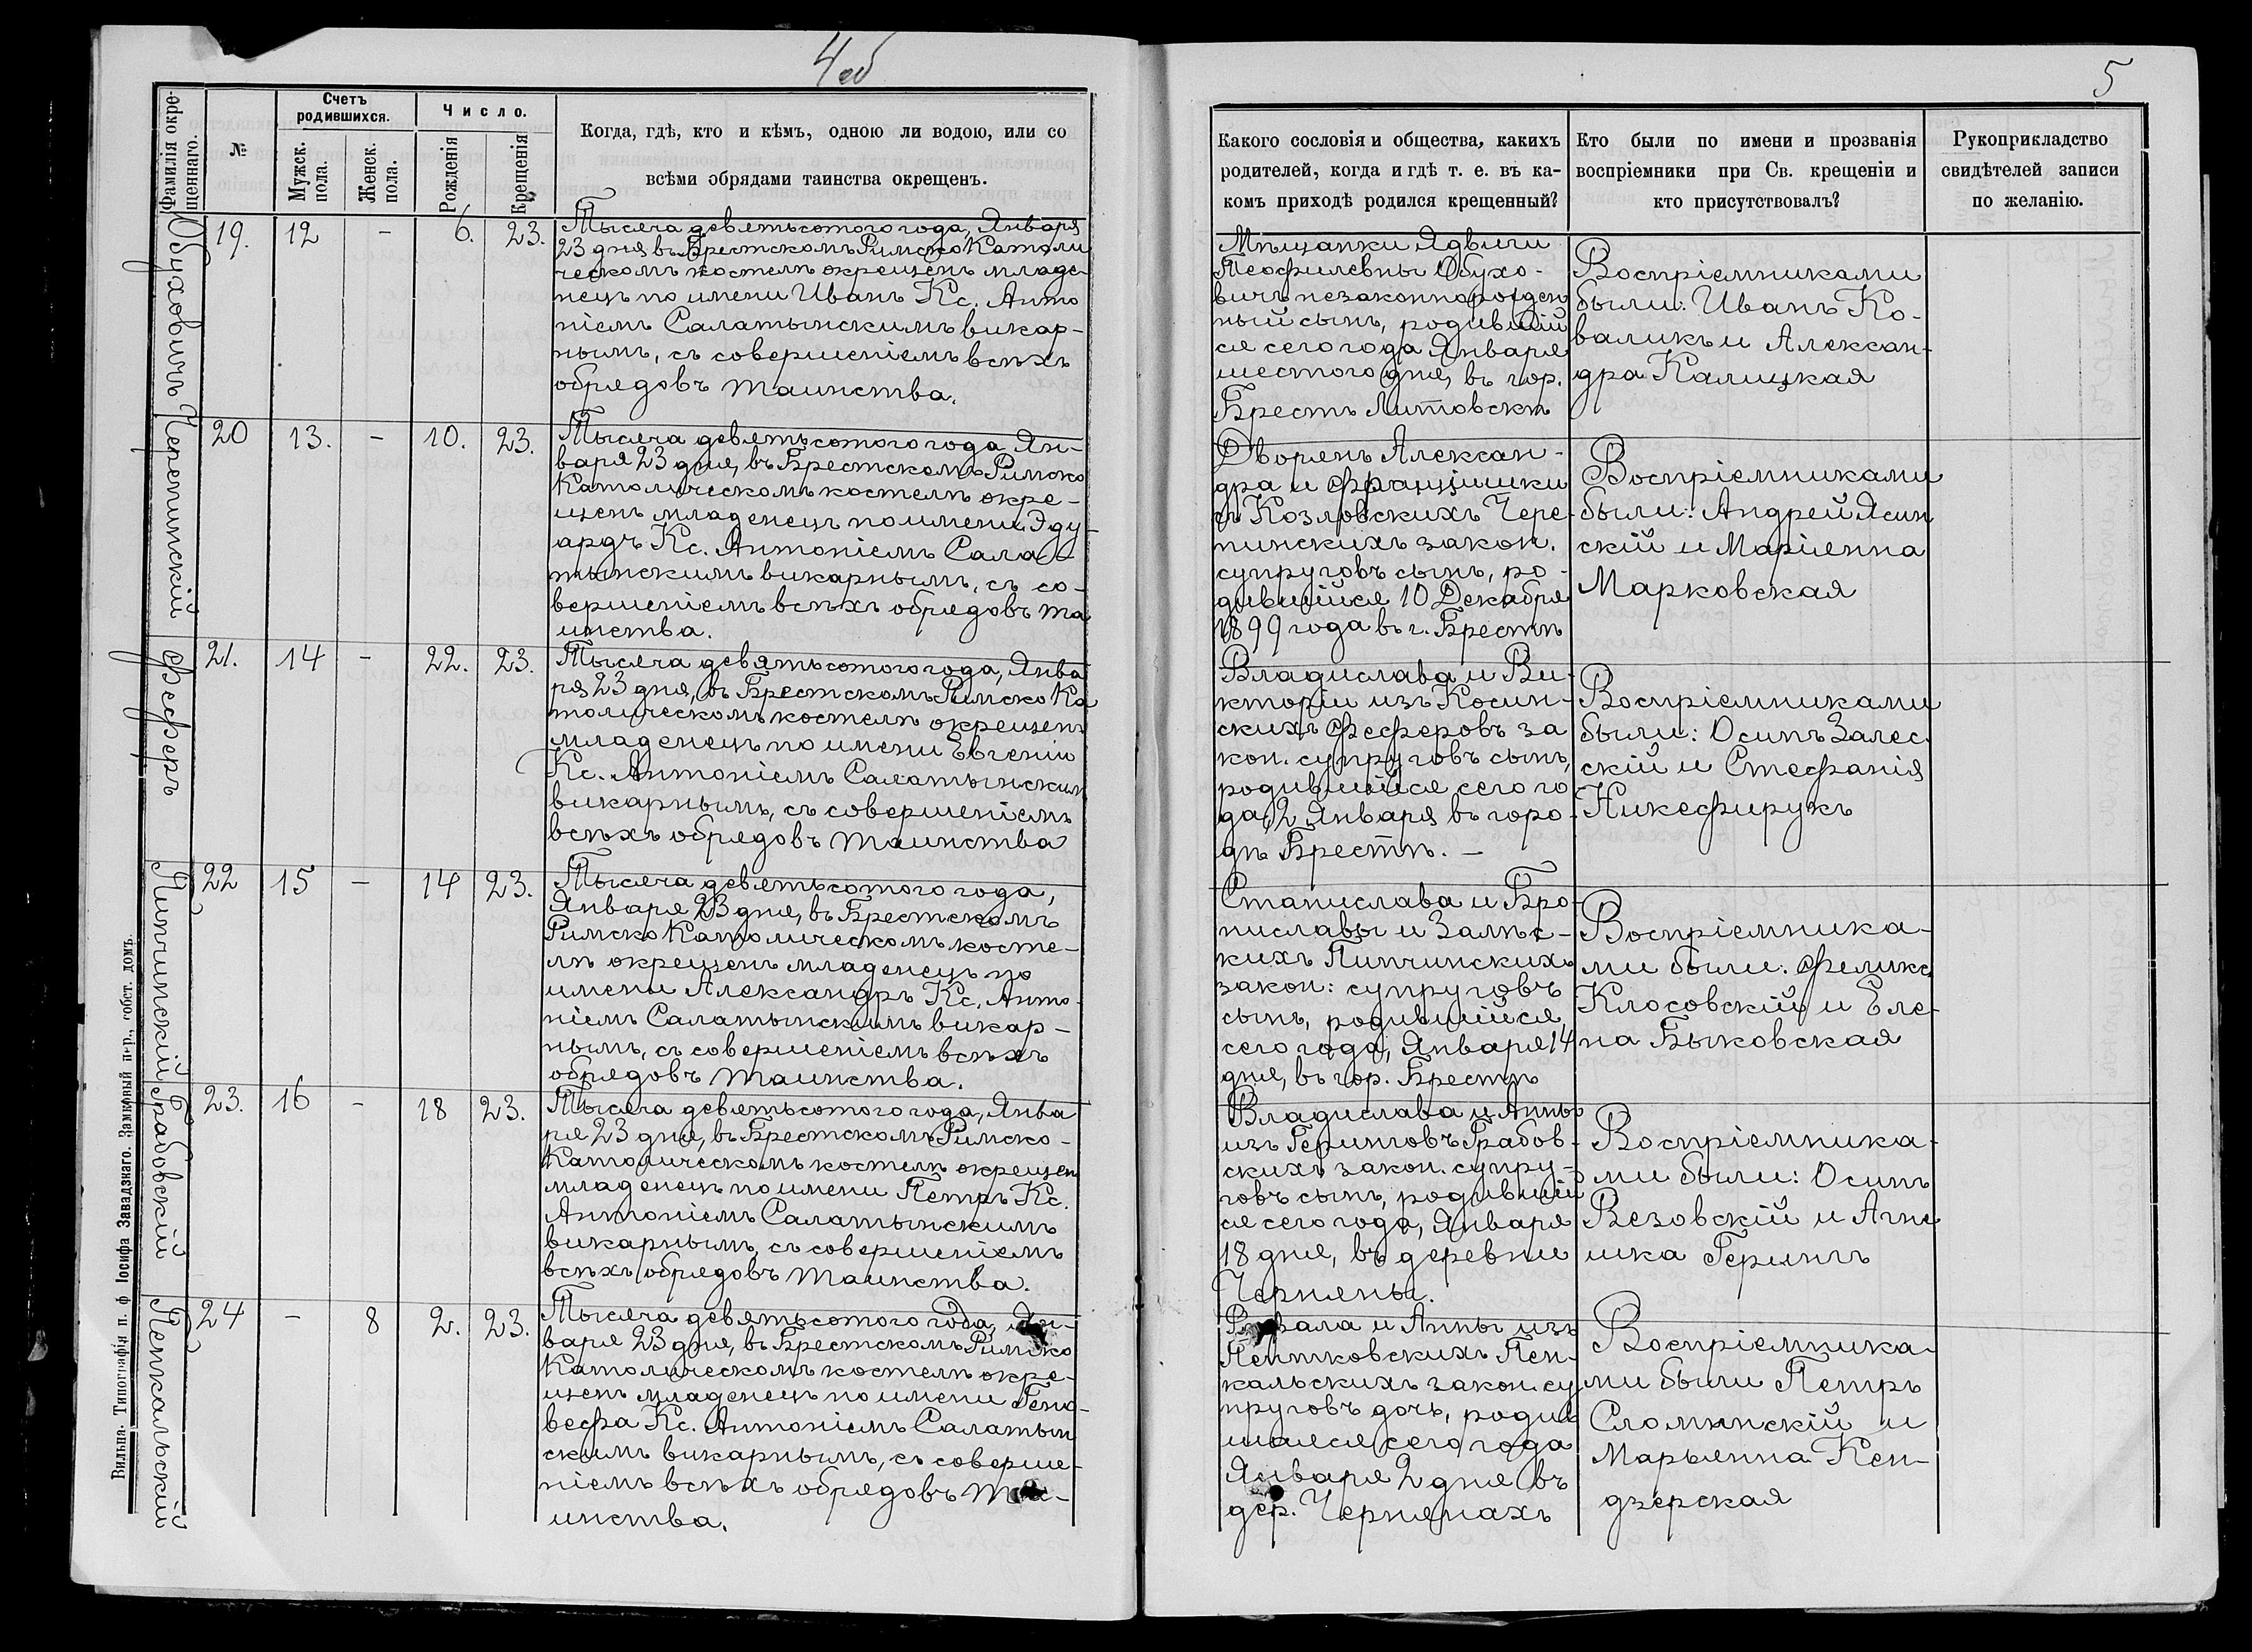 4об
Фамилія окре-
щеннаго.
№
Счетъ
родившихся.
Мужск.
пола.
Женск.
пола.
Число.
Рожденія
Крещенія
Когда, гдѣ, кто и кѣмъ, одною ли водою, или со
всѣми обрядами таинства окрещенъ.
Обуховичъ
19. 12 - 6. 23.
Тысяча девятьсотого года, Января
23 дня, въ Брестскомъ Римско Католи
ческомъ костелѣ окрещенъ младе-
нецъ по имени Иванъ Кс. Анто
ніемъ Салатынскимъ викар-
нымъ, съ совершеніемъ всѣхъ
обрядовъ таинства.
Черепинскій
20 13. - 10. 23.
Тысяча девятьсотого года Ян-
варя 23 дня, въ Брестскомъ Римско
Католическомъ костелѣ окре-
щенъ младенецъ по имени Эду-
ардъ Кс. Антоніемъ Сала-
тынскимъ викарнымъ, съ со-
вершеніемъ всѣхъ обрядовъ та
инства.
Фефферъ
21. 14 - 22. 23.
Тысяча девятьсотого года, Янва
ря 23 дня, въ Брестскомъ Римско Ка
толическомъ костелѣ окрещенъ
младенецъ по имени Евгеній
Кс. Антоніемъ Салатынским
викарнымъ, съ совершеніемъ
всѣхъ обрядовъ таинства
Пипчинскій
22 15 - 14 23.
Тысяча девятьсотого года,
Января 23 дня, въ Брестскомъ
Римско Католическомъ косте-
лѣ окрещенъ младенецъ по
имени Александръ Кс. Анто-
ніемъ Салатынскимъ викар-
нымъ, съ совершеніемъ всѣхъ
обрядовъ таинства.
Грабовскій
23. 16 - 18 23.
Тысяча девятьсотого года, Янва
ря 23 дня, въ Брестскомъ Римско-
Католическомъ костелѣ окрещен
младенецъ по имени Петръ Кс.
Антоніемъ Салатынскимъ
викарнымъ, съ совершеніемъ
всѣхъ обрядовъ таинства.
Пенкальскій
24 - 8 2. 23.
Тысяча девятьсотого года, Ян-
варя 23 дня, въ Брестскомъ Римско
Католическомъ костелѣ окре-
щенъ младенецъ по имени Гено-
вефа Кс. Антоніемъ Салатын
скимъ викарнымъ, съ соверше-
ніемъ всѣхъ обрядовъ та-
инства.
Вильна. Типографія п. ф. Іосифа Завадзкаго. Замковый п-р., собст. домъ.
5
Какого сословія и общества, какихъ
родителей, когда и гдѣ т. е. въ ка-
комъ приходѣ родился крещенный?
Кто были по имени и прозванія
воспріемники при Св. крещеніи и
кто присутствовалъ?
Рукоприкладство
свидѣтелей записи
по желанію.
Мѣщанки Ядвиги
Теофилевны Обухо-
вичъ незаконнорожден
ный сынъ, родившій
ся сего года Января
шестого дня, въ гор.
Брестъ Литовскѣ
Воспріемниками
были: Иванъ Ко-
валикъ и Алексан-
дра Калицкая
Дворянъ Алексан-
дра и Францишки
съ Козловскихъ Чере-
пинскихъ закон.
супруговъ сынъ, ро-
дившійся 10 Декабря
1899 года въ г. Брестѣ
Воспріемниками
были: Андрей Ясин
скій и Маріянна
Марковская
Владислава и Ви-
кторіи изъ Косин-
скихъ Фефферовъ за
кон. супруговъ сынъ,
родившійся сего го
да, 2 Января въ горо-
дѣ Брестѣ. -
Воспріемниками
были: Осипъ Залес
скій и Стефанія
Никефирукъ
Станислава и Бро-
ниславы и Залѣс-
кихъ Пипчинскихъ
закон: супруговъ
сынъ, родившійся
сего года, Января 14
дня, въ гор. Брестѣ
Воспріемника-
ми были: Феликс
Клосовскій и Еле-
на Быковская
Владислава и Анны
изъ Геринговъ Грабов-
скихъ закон. супру-
говъ сынъ, родившій
ся сего года, Января
18 дня, въ деревни
Черняны.
Воспріемника-
ми были: Осипъ
Везовскій и Агне
шка Герингъ
и Анны изъ
Пентковскихъ Пен-
кальскихъ закон. су
пруговъ дочь, родив
шаяся сего года
Января 2 дня въ
дер. Чернянахъ
Воспріемника-
ми были Петръ
Сломинскій и
Марьянна Кен-
дзерская